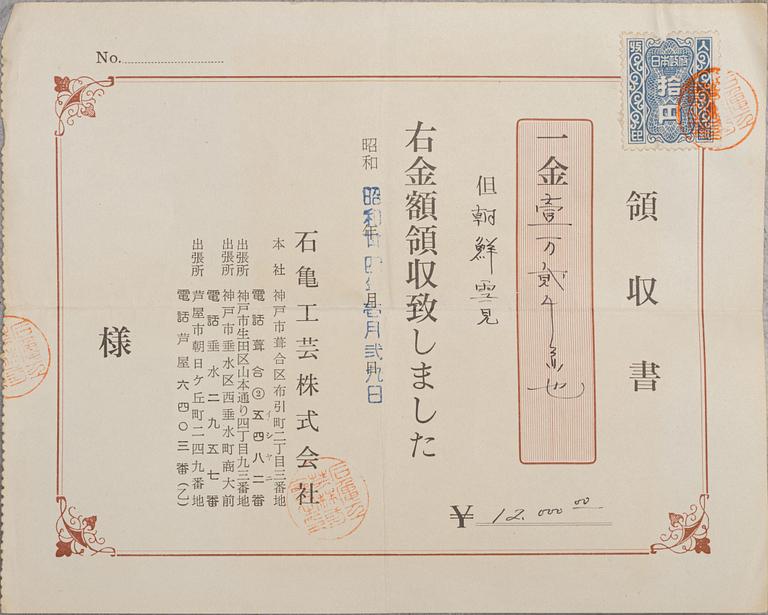 No.
収入
日本政府
拾円
領収書
一金壹万貳千圓也
但朝鮮雪見
右金額領収致しました
昭和 年 月 日
昭和廿四年壱月弐九日
石亀工芸株式会社
本社 神戸市葺合区布引町二丁目三番地
イシヤニ
電話葺合②五四八二番
出張所 神戸市生田区山本通り四丁目九三番地
出張所 神戸市垂水区西垂水町商大前
電話垂水二九五七番
出張所 芦屋市朝日ケ丘町二四九番地
電話芦屋六四〇三番(乙)
様
¥ 12.000 00